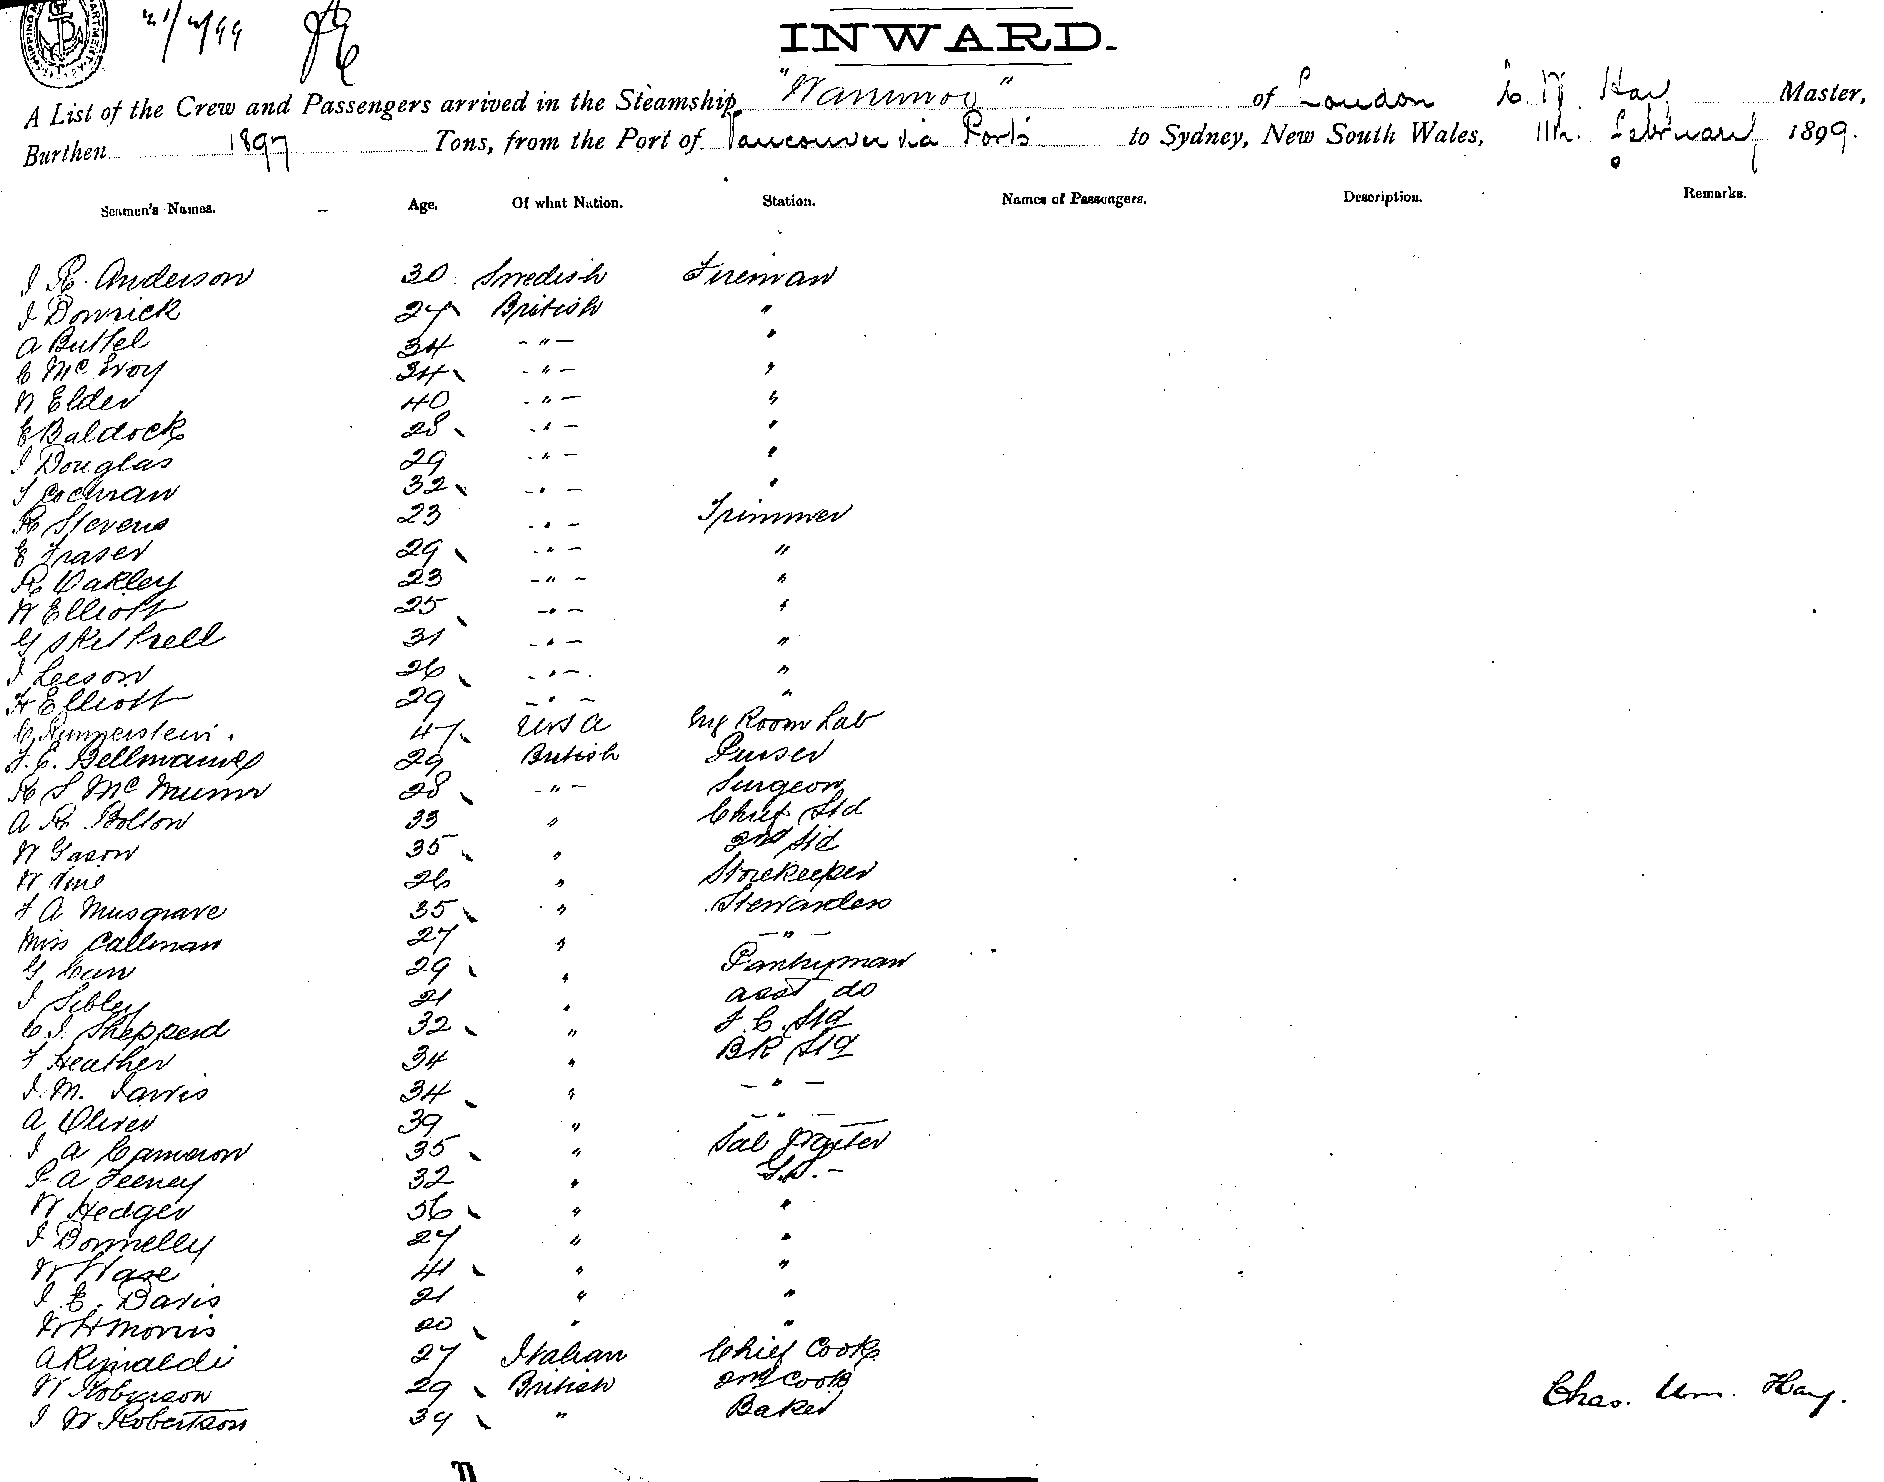 21/2/99
INWARD.
A List of the Crew and Passengers arrived in the Steamship "Warrimoo" of London C. W. Hay Master,
Burthen 1897 Tons, from the Port of Vancouver via Ports to Sydney, New South Wales, 11th February 1899.
Seamen's Names. Age. Of what Nation. Station. Names of Passengers. Description. Remarks.
J R. Anderson 30 Swedish Fireman
J 27 British "
A Buttel 34 - " - "
C McEvoy 34 - " - "
W Elder 40 - " - "
E Baldock 28 - " - "
J Douglas 29 - " - "
J Cochran 32 - " - "
R Stevens 23 - " - Trimmer
E Fraser 29 - " - "
R Oakley 23 - " - "
W Elliott 25 - " - "
G 31 - " - "
J Leeson 26 - " - "
H Elliott 29 - " - "
C 47 USA Eng Room Lab
29 British Purser
R S 28 - " - Surgeon
A R. Bolton 33 " Chief Std
W Gason 35 " 2nd Std
W Vine 26 " Storekeeper
F A Musgrave 35 " Stewardess
Miss Callman 27 " - " -
G 29 " Pantryman
J Sibley 21 " asst do
C J. Shepperd 32 " F. C. Std
F Heather 34 " BR Std
J. M. Jarvis 34 " - " -
A Oliver 39 " - " -
J A Cameron 35 " Sal Waiter
P. A Feeney 32 " G.S. -
W Hedger 36 " "
J Donnelly 27 " "
W Wase 41 " "
J. E. Davis 21 " "
W H Morris 20 " "
A Rinaldi 27 Italian Chief Cook
W Robinson 29 British 2nd Cook
J W Robertson 39 " Baker
Chas. Wm. Hay.